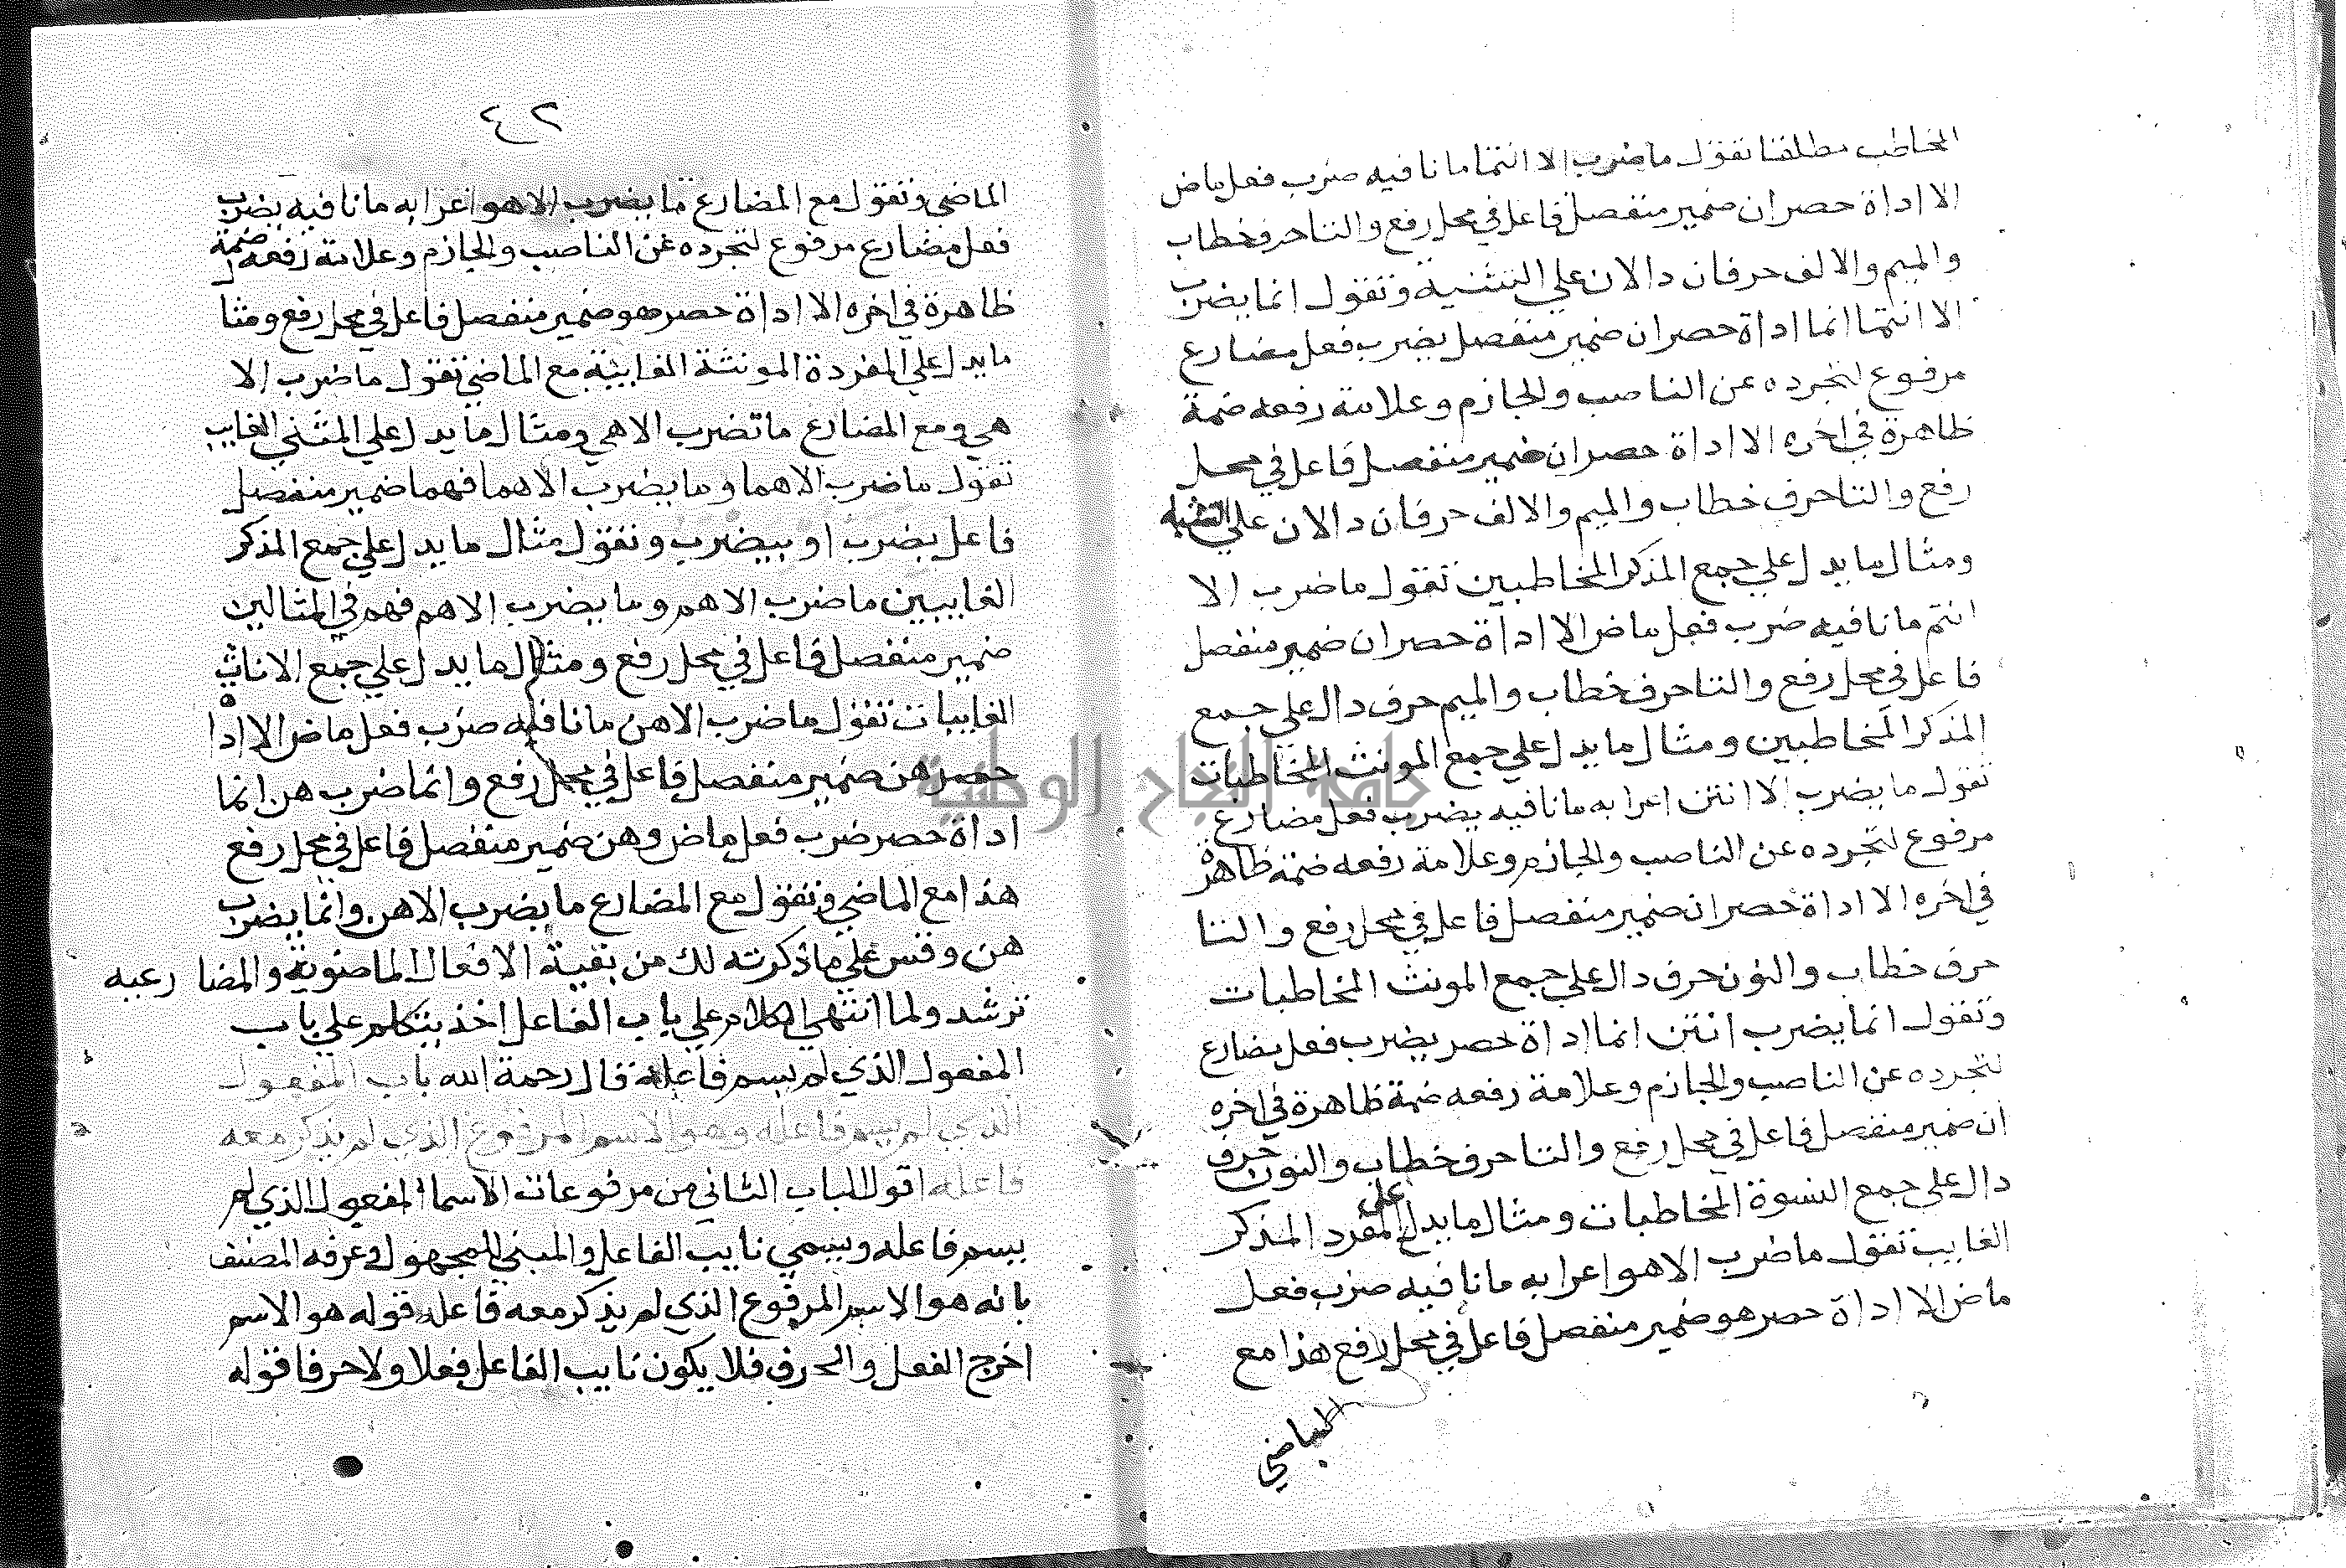 المخاطب مطلقا تقول ماضرب الا انتما ما نافيه ضرب فعل ماض
الا اداة حصر ان ضمير منفصل فاعل في محل رفع والتا حرف خطاب
والميم والالف حرفان دالان علي التثنيه وتقول انما يضرب
الا انتما انما اداة حصر ان ضمير منفصل يضرب فعل مضارع
مرفوع لتجرده عن الناصب والجازم وعلامة رفعه ضمة
ظاهرة في اخره الا اداة حصر ان ضمير منفصل فاعل في محل
رفع والتا حرف خطاب والميم والالف حرفان دالان علي التثنيه
ومثال ما يدل علي جمع المذكر المخاطبين تقول ما ضرب الا
انتم ما نافيه ضرب فعل ماض الا اداة حصر ان ضمير منفصل
فاعل في محل رفع والتا حرف خطاب والميم حرف دال علي جمع
المذكر المخاطبين ومثال ما يدل علي جمع المونث المخاطبات
تقول ما يضرب الا انتن اعرابه ما نافيه يضرب فعل مضارع
مرفوع لتجرده عن الناصب والجازم وعلامة رفعه ضمة ظاهرة
في اخره الا اداة حصر ان ضمير منفصل فاعل في محل رفع والتا
حرف خطاب والنون حرف دال علي جمع المونث المخاطبات
وتقول انما يضرب انتن انما اداة حصر يضرب فعل مضارع
لتجرده عن الناصب والجازم وعلامة رفعه ضمة ظاهرة في اخره
ان ضمير منفصل فاعل في محل رفع والتا حرف خطاب والنون حرف
دال علي جمع النسوة المخاطبات ومثال ما يدل علي المفرد المذكر
الغايب تقول ما ضرب الا هو اعرابه ما نافيه ضرب فعل
ماض الا اداة حصر هو ضمير منفصل فاعل في محل رفع هذا مع
الماضي
٤٢
الماضي وتقول مع المضارع ما يضرب الا هو اعرابه ما نافيه يضرب
فعل مضارع مرفوع لتجرده عن الناصب والجازم وعلامة رفعه ضمة
ظاهرة في اخره الا اداة حصر هو ضمير منفصل فاعل في محل رفع ومثا
ما يدل علي المفردة المونثة الغايبة مع الماضي تقول ما ضرب الا
هي ومع المضارع ما تضرب الا هي ومثال ما يدل علي المثني الغايب
تقول ما ضرب الا هما وما يضرب الا هما فهما ضمير منفصل
فاعل بضرب او بيضرب وتقول مثال ما يدل علي جمع المذكر
الغايبين ما ضرب الا هم وما يضرب الا هم فهم في المثالين
ضمير منفصل فاعل في محل رفع ومثال ما يدل علي جمع الاناث
الغايبات تقول ما ضرب الا هن ما نافيه ضرب فعل ماض الا اداة
حصر هن ضمير منفصل فاعل في محل رفع وانما ضرب هن انما
اداة حصر ضرب فعل ماض وهن ضمير منفصل فاعل في محل رفع
هذا مع الماضي وتقول مع المضارع ما يضرب الا هن وانما يضرب
هن وقس علي ما ذكرته لك من بقية الافعال الماضوية والمضارعيه
ترشد ولما انتهي الكلام علي باب الفاعل اخذ يتكلم علي باب
المفعول الذي لم يسم فاعله قال رحمة الله باب المفعول
الذي لم يسم فاعله وهو الاسم المرفوع الذي لم يذكر معه
فاعله اقول الباب الثاني من مرفوعات الاسما المفعول الذي لم
يسم فاعله ويسمي نايب الفاعل والمبني للمجهول وعرفه المصنف
بانه هو الاسم المرفوع الذي لم يذكر معه فاعله قوله هو الاسم
اخرج الفعل والحرف فلا يكون نايب الفاعل فعلا ولا حرفا قوله
جامعة النجاح الوطنية